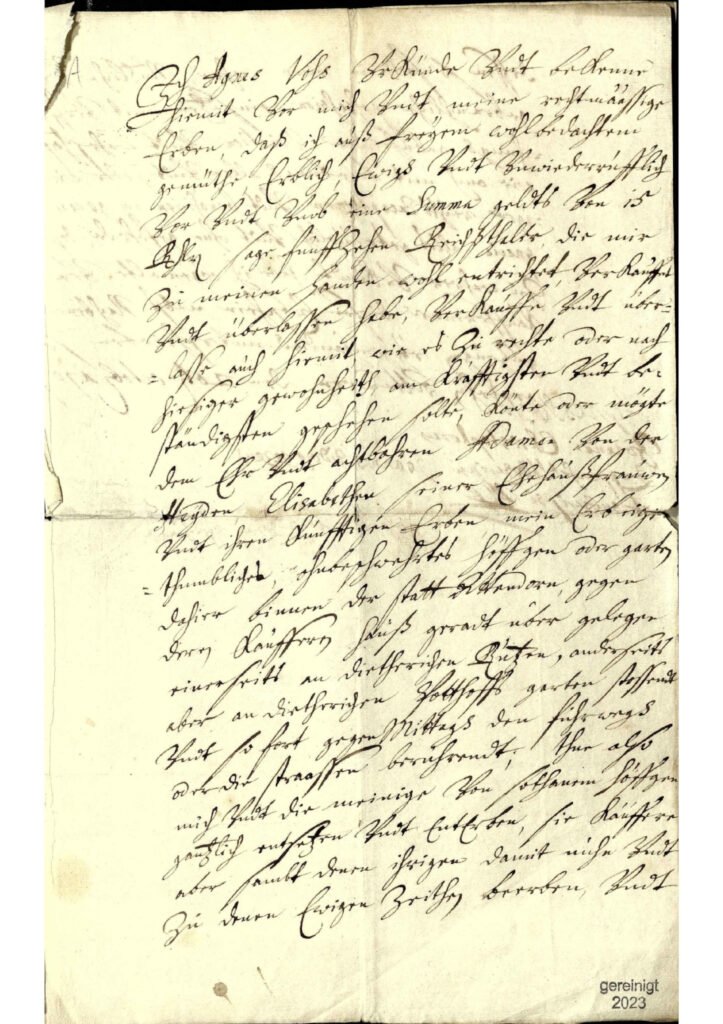 Ich Agnes Vohs Vrkünde Vndt bekenne
hiemit Vor mich Vndt meine rechtmäassige
Erben, daß ich auß freyem wohlbedachtem
gemüthe, Erblich, Ewigs Vndt Vnwiederrufflich
Vor Vndt Vmb eine Summa geldts Von 15
Rthlr sage fünffzehen Reichsthaler die mir
Zu meinen handen wohl entrichtet, Verkaufft
Vndt überlassen habe, Verkauffe Vndt über-
-lasse auch hiemit, wie es Zu rechte oder nach
hiesiger gewohnheith am kräfftigsten Vndt be-
ständigsten geschehen solte, könte oder mögte
dem Ehr Vndt achtbahren Adamen Von der
Heyden, Elisabethen seiner Ehehaußfrauwen
Vndt ihren künfftigen Erben mein Erb eigen
-thumbliches, ohnbeschwehrtes höffgen oder garten
dahier binnen der statt Attendorn, gegen
deren Käufferen hauß geradt über gelegen
einerseits an dietherichen Rützen, anderseits
aber an dietherichen Potthoffs garten stossendt
Vndt so fort gegen Mittags den führwegs
oder die straassen berührendt; thue also
mich Vndt die meinige Von sothanem höffgen
gäntzlich entsetzen Vndt EntErben, sie Käuffere
aber sambt denen ihrigen damit Vndt
Zu denen Ewigen Zeithen beerben, Vndt
gereinigt
2023